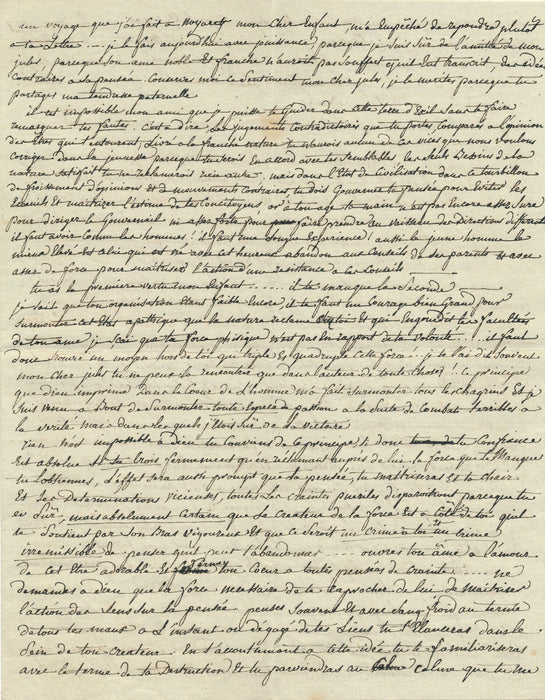 un voyage que j'ai fait a noyaret mon cher Enfant, m'a Empêché de repondre plutot
a ta Lettre .... je le fais aujourdhui avec jouissance, parceque je suis sûr de l'amitié de mon
jules, parceque son ame noble et franche n'auroit pas souffert qu'il Eut transcrit des idées
contraires a sa pensée. Conserves moi ce sentiment mon cher jules, je le merites parceque tu
partages ma tendresse paternelle
il est impossible mon ami que je puisse te guider dans cette terre d'Exil sans te faire
remarquer tes fautes. C'est a dire les jugements contradictoires que tu portes comparés a l'opinion
des Etres qui t'entourent, Livré a la franche nature tu n'aurois aucun de ces vices que nous voulons
corriger dans la jeunesse parceque tu serois En accord avec tes semblables les seuls Besoins de la
nature satisfait tu ne reclamerois rien autre. mais dans l'Etat de Civilisation dans ce tourbillon
de froissement d'opinions Et de mouvements contraires tu dois Gouverner ta pensée pour Eviter les
Ecueils Et maitriser l'estime de tes Concitoyens or a ton age ta main n'est pas Encore assez sure
pour diriger le Gouvernail ni assez forte pour faire prendre au vaisseau des directions differentes
il faut avoir connu les hommes! il faut une longue Experience! aussi le jeune homme le
mieux Elevé Est celui qui est né avec cet heureux abandon aux Conseils de ses parents Et avec
assez de force pour maitriser l'action d'une resistance a ces Conseils
tu as la premiere vertu mon Enfant ...... il te manque la seconde
je sait que ton organisation Etant faible Encore il te faut un Courage bien Grand pour
surmonter cet Etat apathique que la nature reclame Et qui Engourdit les facultés
de ton ame je scai que ta force phisique n'est pas En rapport de ta volonté ... il faut
donc trouver un moyen hors de toi qui triple Et quadruple cette force! je te l'ai dit souvent
mon cher jules tu ne peux la rencontrer que dans l'auteur de toute chose! ce principe
que dieu imprima dans le Coeur de L'homme m'a fait surmonter tous les chagrins Et je
suis venu a Bout de surmonter toute Espece de passion a la suite de combats terribles a
la verité mais dans les quels j'Etois sûr de la victoire
rien n'est impossible a dieu tu Conviens de ce principe, si donc ta Confiance
Est absolue si tu Crois fermement qu'en reclamant auprès de lui la force qui te manque
tu l'obtiennes, l'effet sera aussi prompt que ta pensée, tu maitriseras Et ta chair
Et ses determinations vicieuses, toutes les craintes pueriles disparoitront parceque tu
es sûr, mais absolument certain que le Createur de la force Est a coté de toi qu'il
te soutient par son Bras vigoureux Et que ce seroit un crime a toi Et un crime
irremissible de penser qu'il peut t'abandonner .... ouvres ton âme a l'amour
de cet Etre adorable Et fermes ton Coeur a toutes pensées de Crainte ..... ne
demandes a dieu que la force necessaire de te raprocher de lui de maitriser
l'action des sens sur ta pensée penses souvent Et avec sang froid au terme
de tous tes maux a L'instant ou dégagé de tes Liens tu t'Elanceras dans le
sein de ton createur. En t'accoutumant a cette idée tu te familiariseras
avec le terme de ta destruction Et tu parviendras au calme que tu me